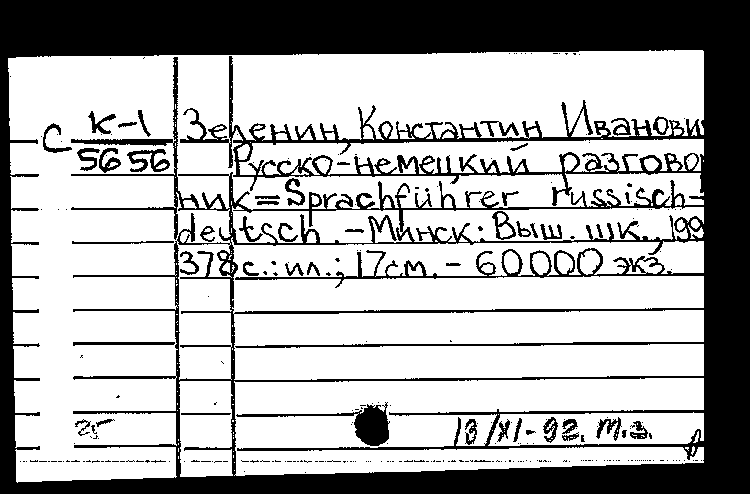 С К-1
5656
Зеленин, Константин Иванови
Русско-немецкий разгово
ник=Sprachführer russisch-
deutsch. - Минск: Выш. шк., 199
378 с.: ил.; 17 см. - 60000 экз.
25
13/XI-92. т.з.